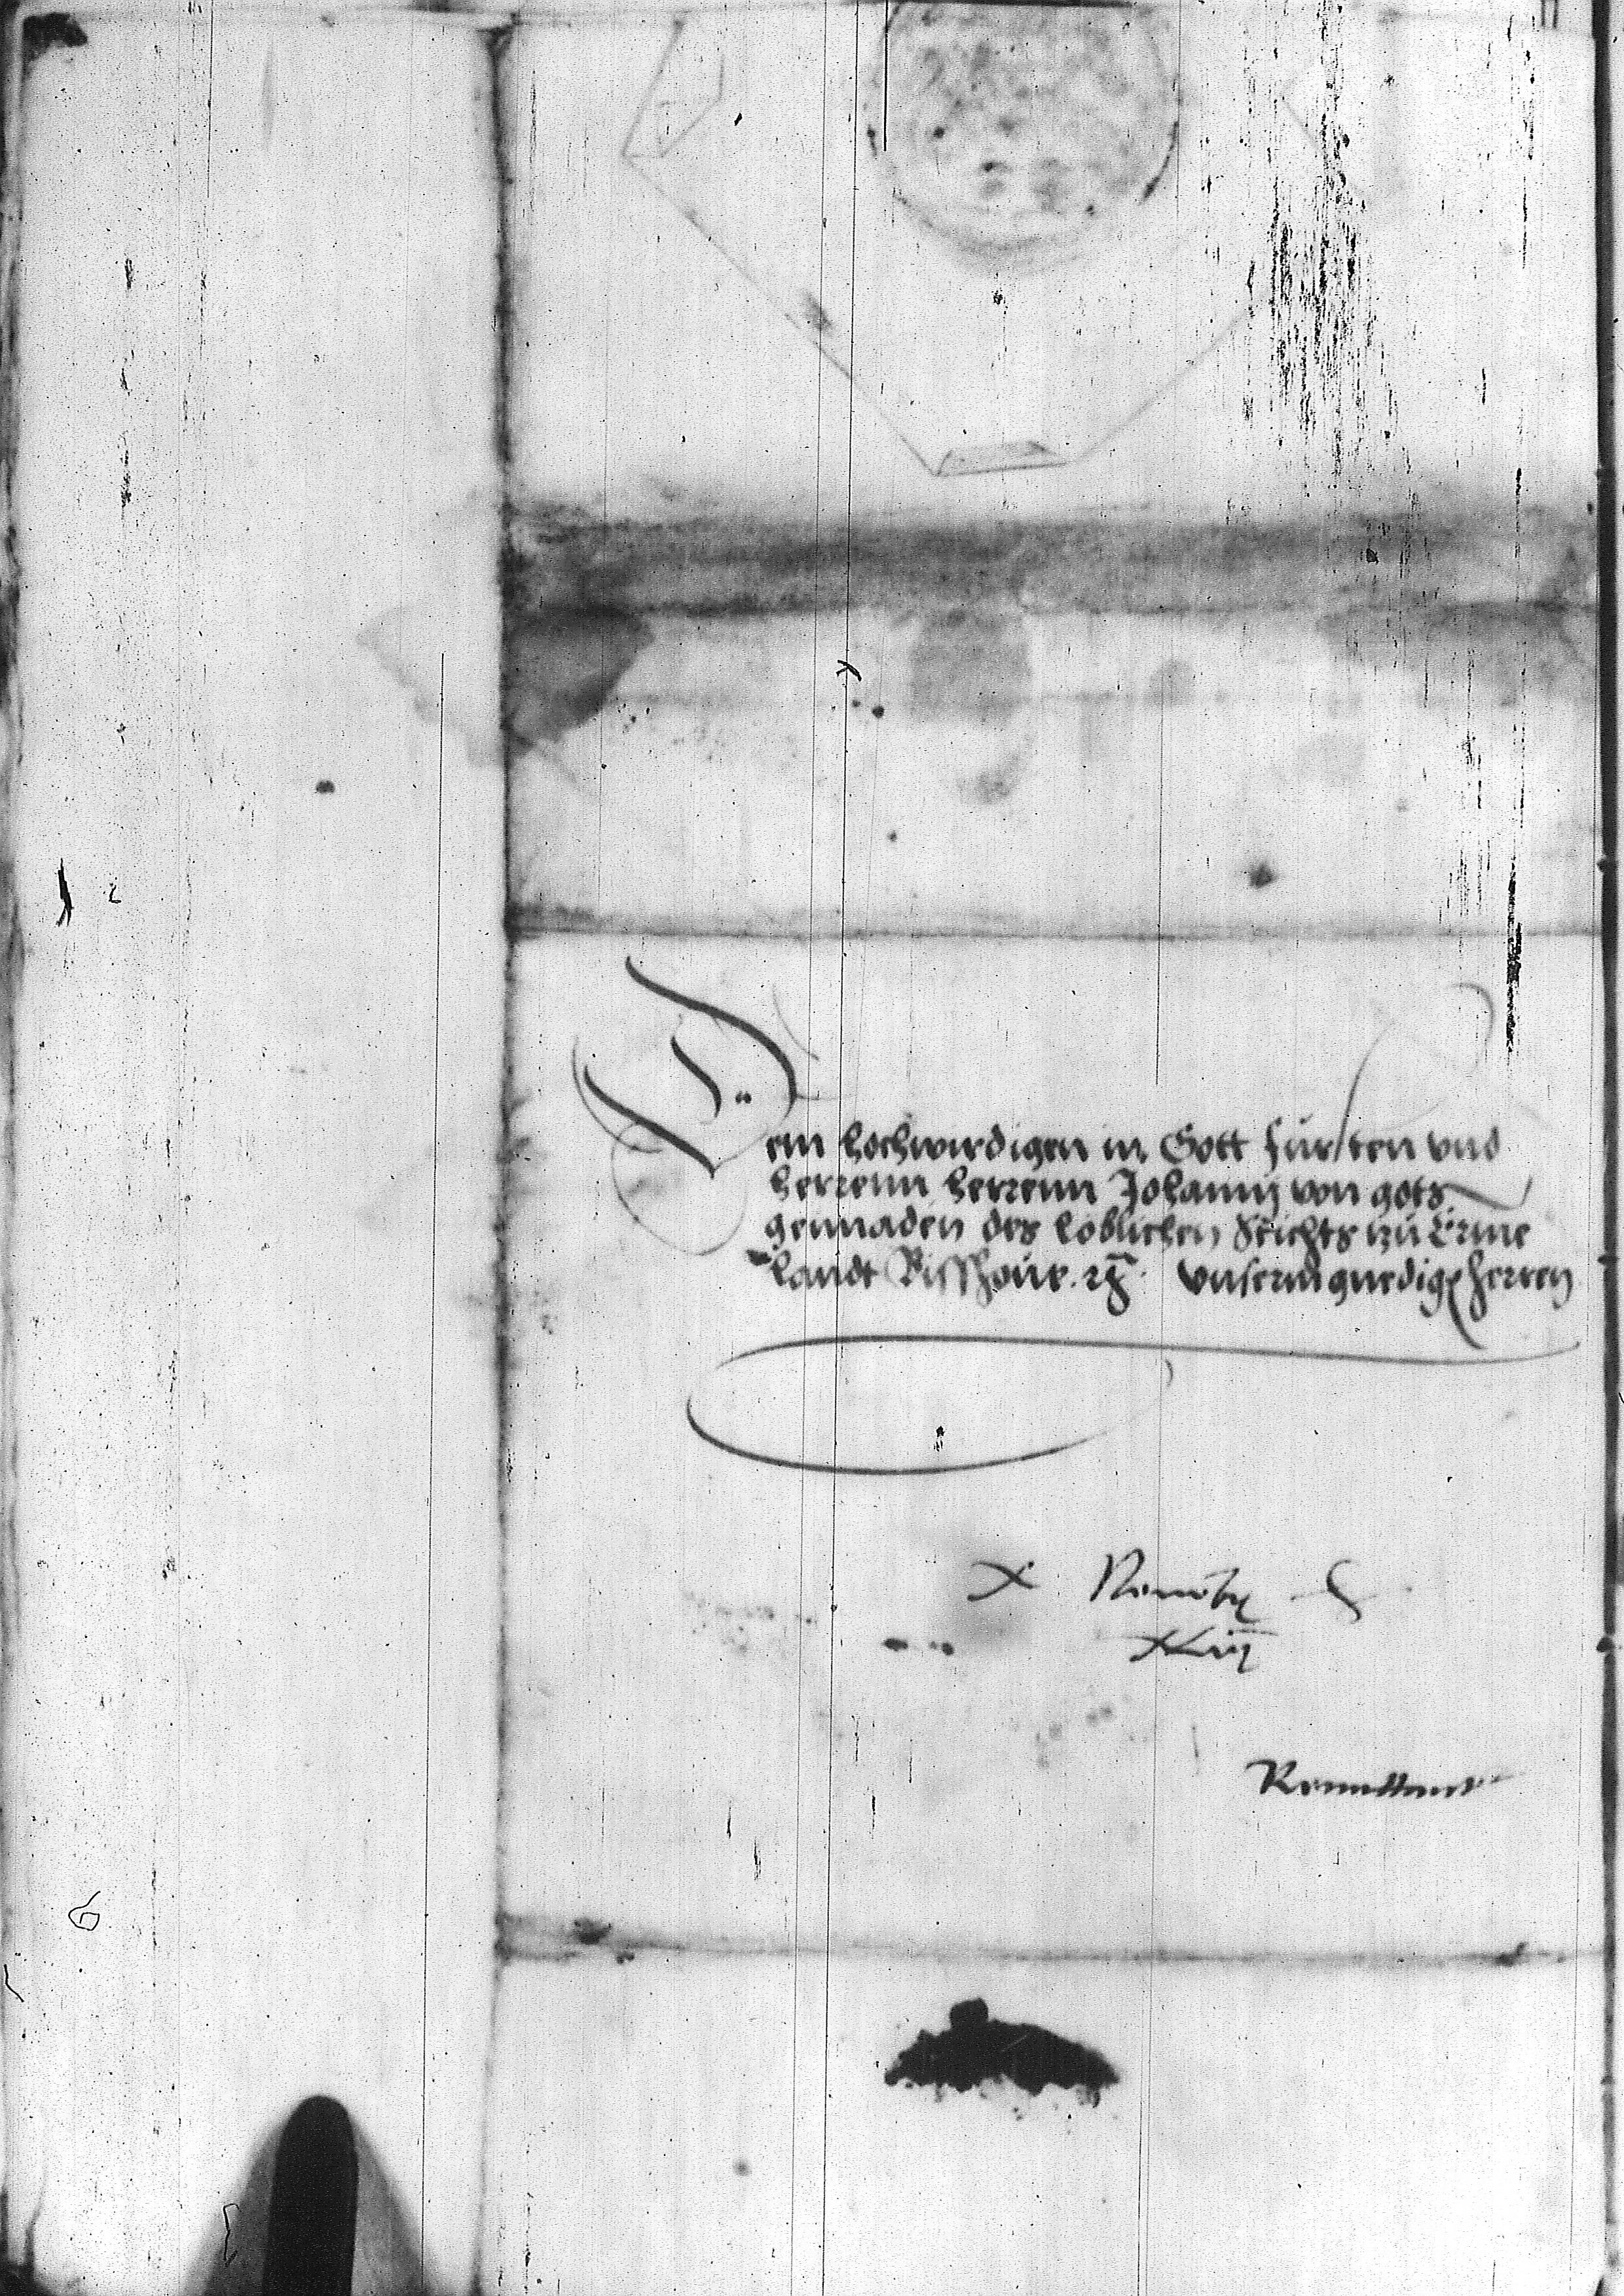 Dem hochwirdigen in Gott fursten vnd
herrenn herrenn Johannẏ von gots
gennaden des loblichen Stichts zu Erme
landt Bisschoue. ꝛc̄. vnserm gnedigen herren
X
xliij